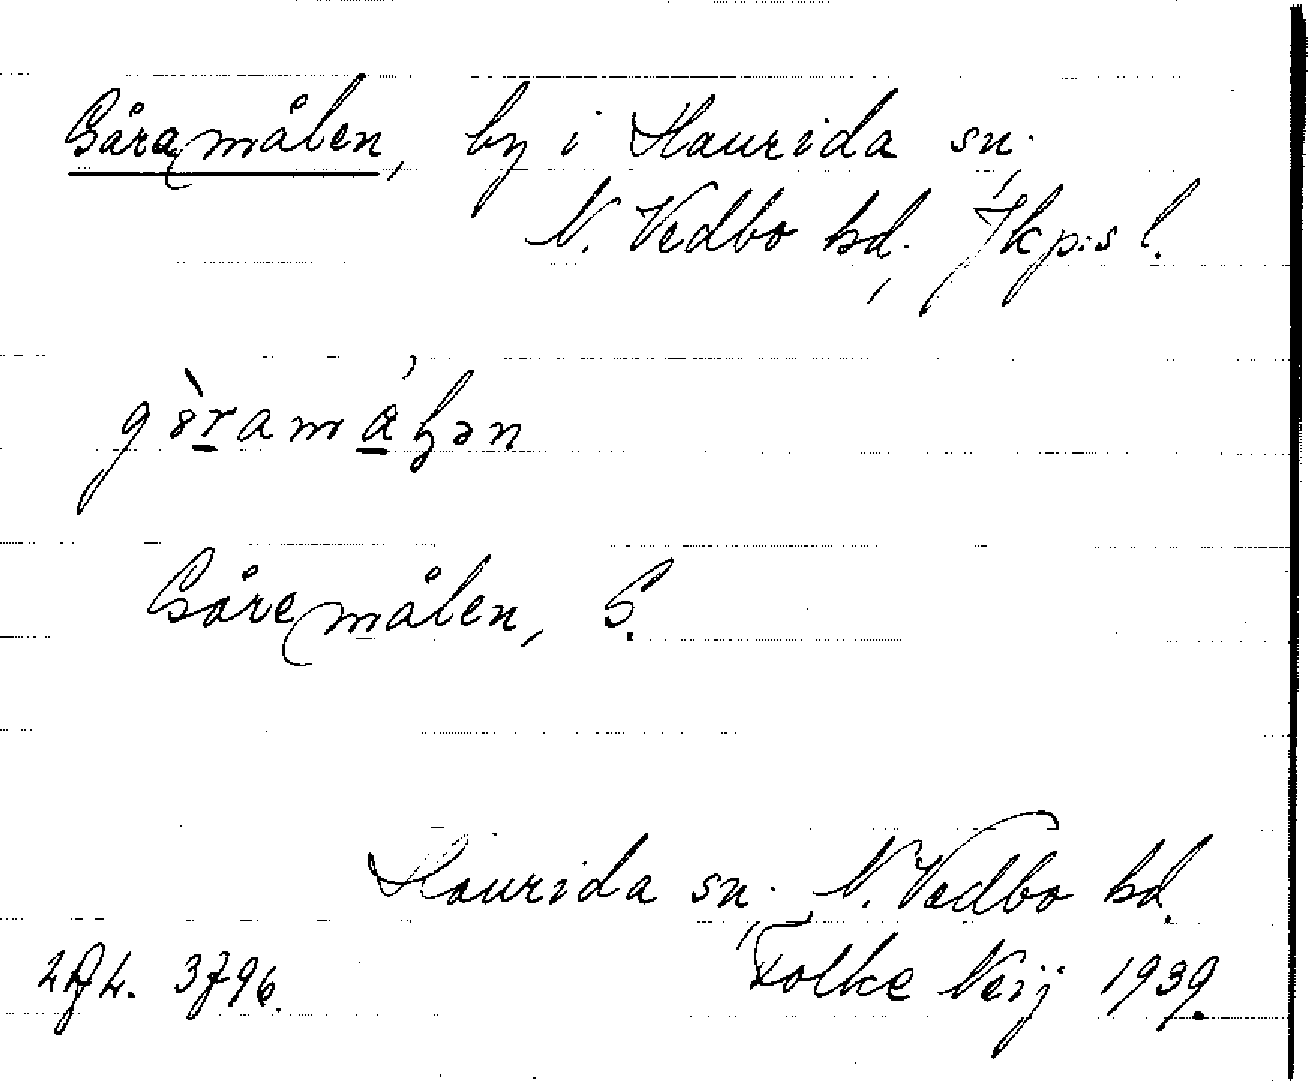 Gåramålen, by i Haurida sn.,
N. Vedbo hd., Jkp:s l.
Gåremålen, S.
Haurida sn., N. Vedbo hd.
Folke Neij 1939.